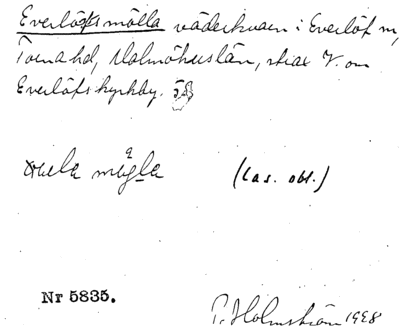 Everlöfs mölla väderkvarn i Everlöf sn,
Torna hd, Malmöhus län, strax V. om
Everlöfs kyrkby.
mågla (Cas. obl.)
Nr 5835.
P. Holmström 1928